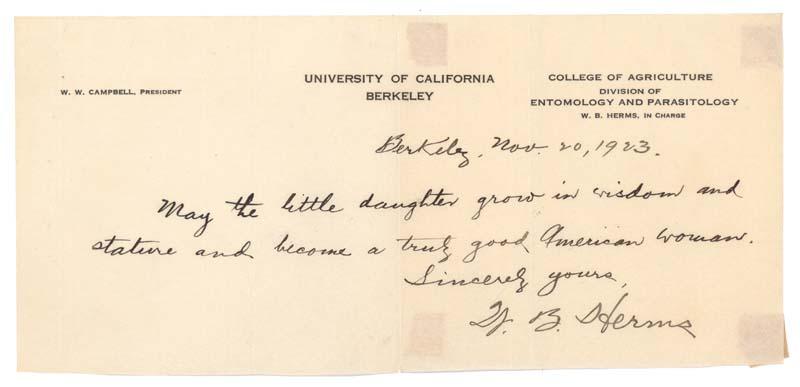 W. W. CAMPBELL, PRESIDENT
UNIVERSITY OF CALIFORNIA
BERKELEY
COLLEGE OF AGRICULTURE
DIVISION OF
ENTOMOLOGY AND PARASITOLOGY
W. B. HERMS, IN CHARGE
Berkeley, Nov. 20, 1923.
May the little daughter grow in wisdom and
stature and become a truly good American woman.
Sincerely yours,
W. B. Herms